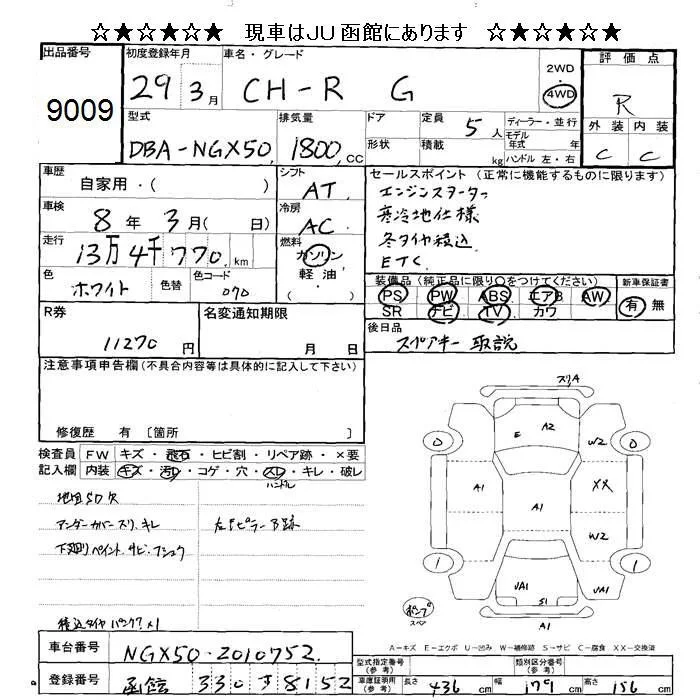 ☆★☆★☆★ 現車はJU函館にあります ☆★☆★☆★
出品番号 9009
初度登録年月 29 3月
車名・グレード CH-R G
2WD・4WD
評価点 R
外装 C 内装 C
型式 DBA-NGX50
排気量 1800 CC
ドア
形状
定員 5人
積載 kg
ディーラー・並行
モデル年式 年式
ハンドル 左・右
車歴 自家用・( )
車検 8年 3月( 日)
走行 13万4千770 km
色 ホワイト 色替 色コード 070
シフト AT
冷房 AC
燃料 ガソリン
軽油
( )
セールスポイント(正常に機能するものに限ります)
エンジンスターター
寒冷地仕様
冬タイヤ積込
ETC
装備品(純正品に限り○をつけてください)
PS PW ABS エアB AW
SR ナビ TV カワ
新車保証書 有 無
後日品
スペアキー 取説
R券 11270円
名変通知期限
月 日
注意事項申告欄(不具合内容等は具体的に記入して下さい)
修復歴 有 〔箇所 〕
検査員記入欄
FW キズ・飛石・ヒビ割・リペア跡・×要
内装 キズ・汚れ・コゲ・穴・スレ・キレ・破レ
ハンドル
地図SD欠
アンダーカバースリ、キレ
下廻りペイント、サビ、フショク
積込タイヤパンク?×1
スリA
E A2
0 0
W2
A1 A1 XX
W2
1 1
JA1 S1 JA1
A1
ポンプ
スペア
A-キズ E-エクボ U-凹み W-補修跡 S-サビ C-腐食 XX-交換済
車台番号 NGX50-2010752
登録番号 函館 330 す 8152
型式指定番号(参考)
類別区分番号(参考)
車庫証明用(参考) 長さ 436 cm 幅 179 cm 高さ 156 cm